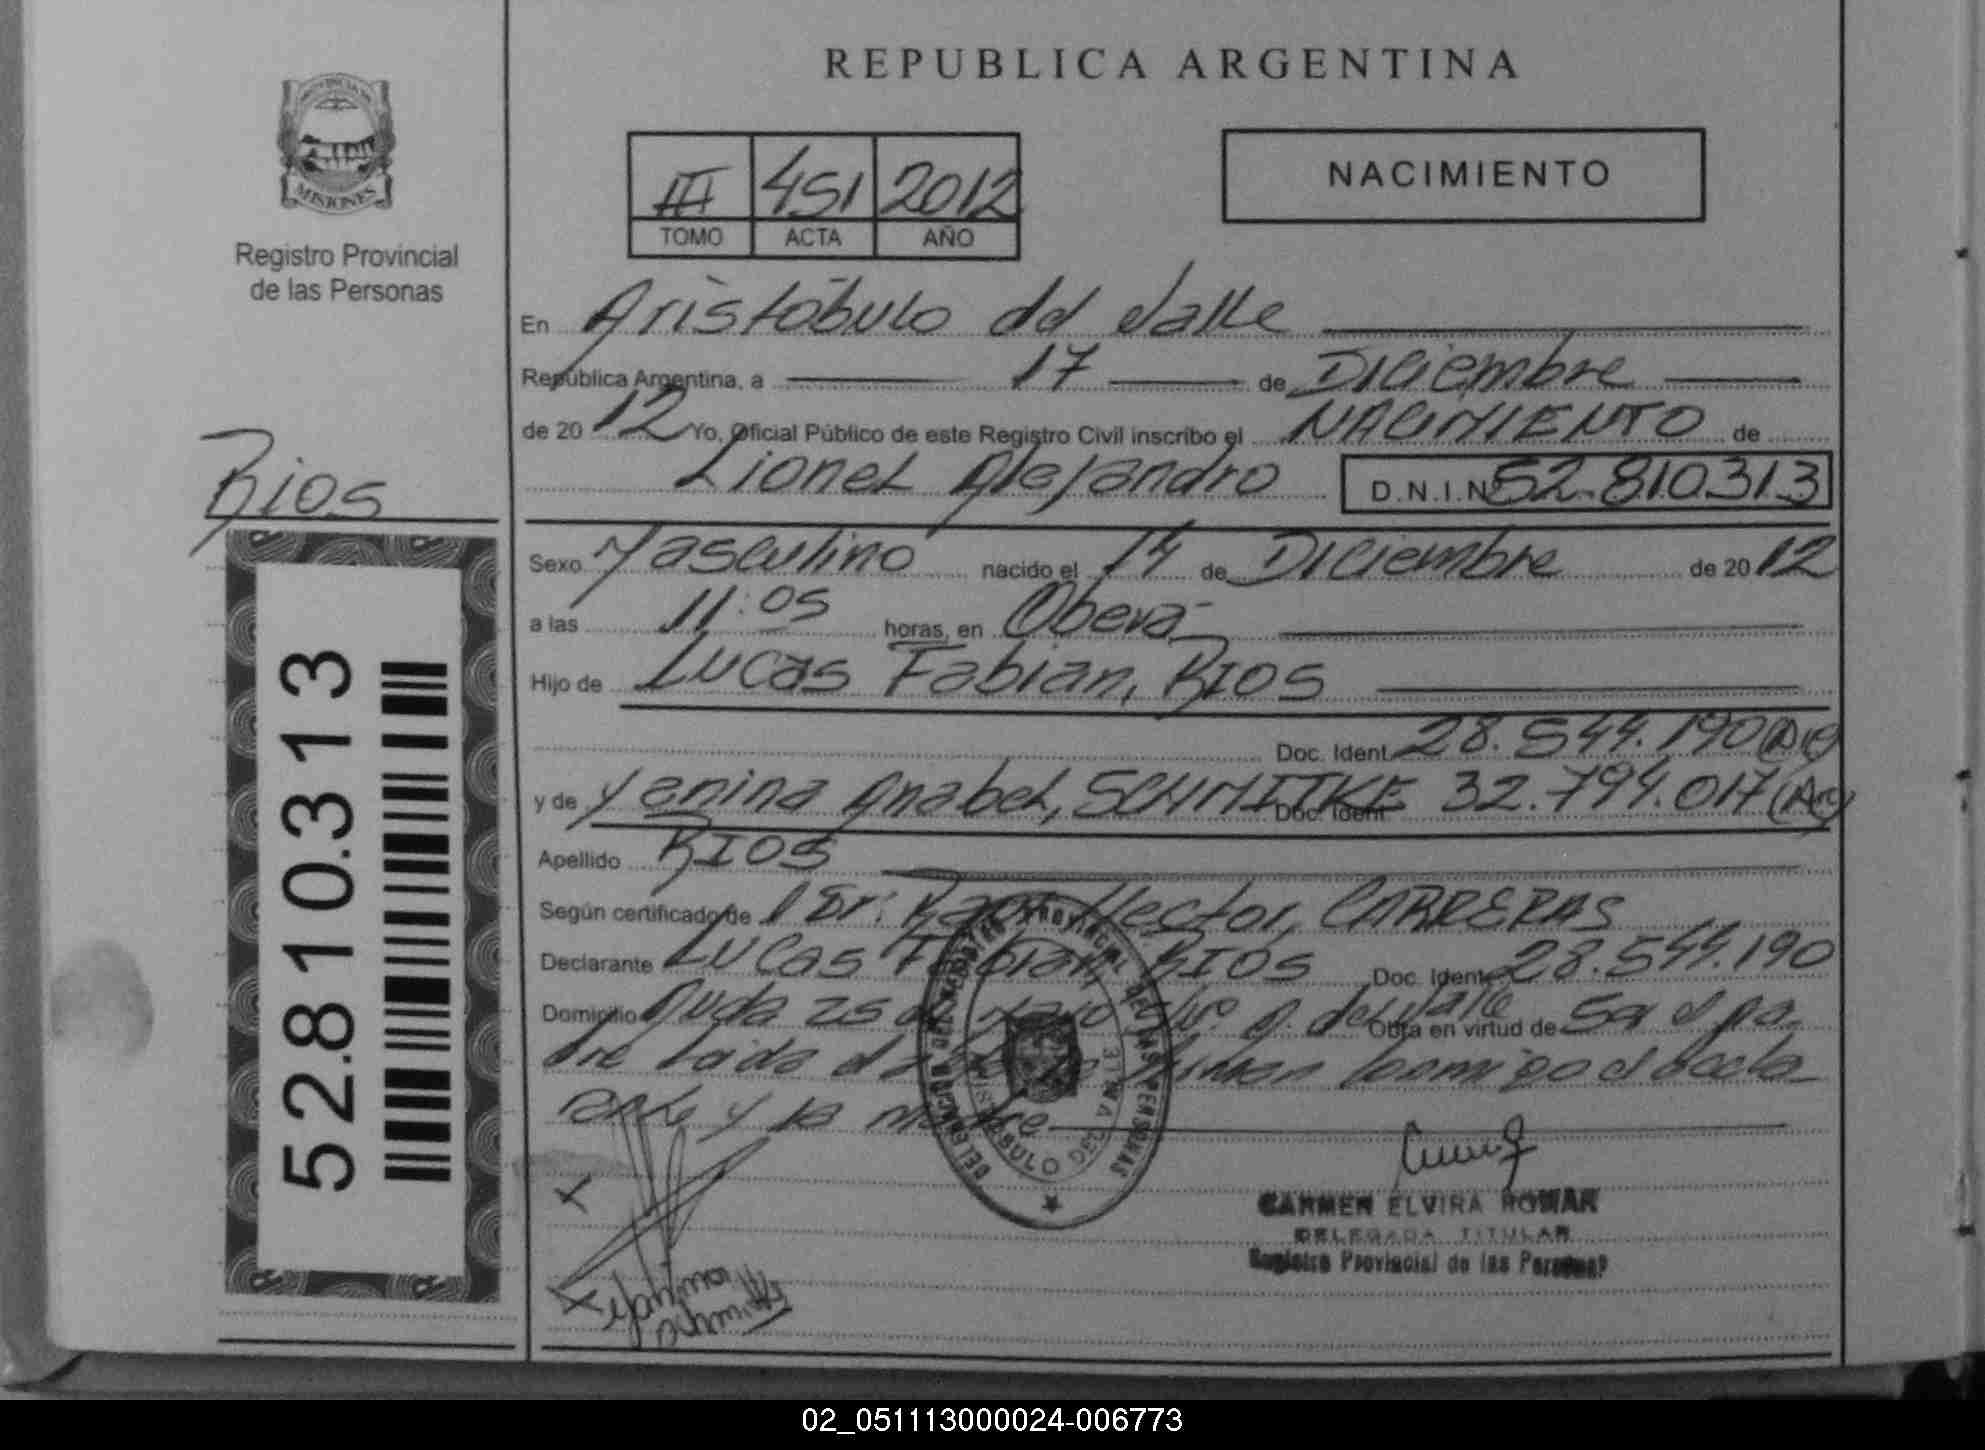 REPUBLICA ARGENTINA
MISIONES
Registro Provincial
de las Personas
III 451 2012
TOMO ACTA AÑO
NACIMIENTO
En Aristóbulo del Valle
República Argentina, a 17 de Diciembre
de 2012 Yo, Oficial Público de este Registro Civil inscribo el NACIMIENTO de
Lionel Alejandro D.N.I.N 52.810313
Rios
52.810.313
Sexo Masculino nacido el 14 de Diciembre de 2012
a las 11:05 horas, en Oberá
Hijo de Lucas Fabian, RIOS
Doc. Ident. 28.544.190 (Arg)
y de Yanina Anabel, SCHMITKE Doc. Ident. 32.794.017 (Arg)
Apellido RIOS
Según certificado de Dr: Raul Hector, CARRERAS
Declarante Lucas Fabian RIOS Doc. Ident. 28.544.190
Domicilio Avda 25 de Mayo A. del Valle Obra en virtud de Ser el pa
dre el
ante y la madre
CARMEN ELVIRA ROMAN
DELEGADA TITULAR
Registro Provincial de las Personas
02_051113000024-006773